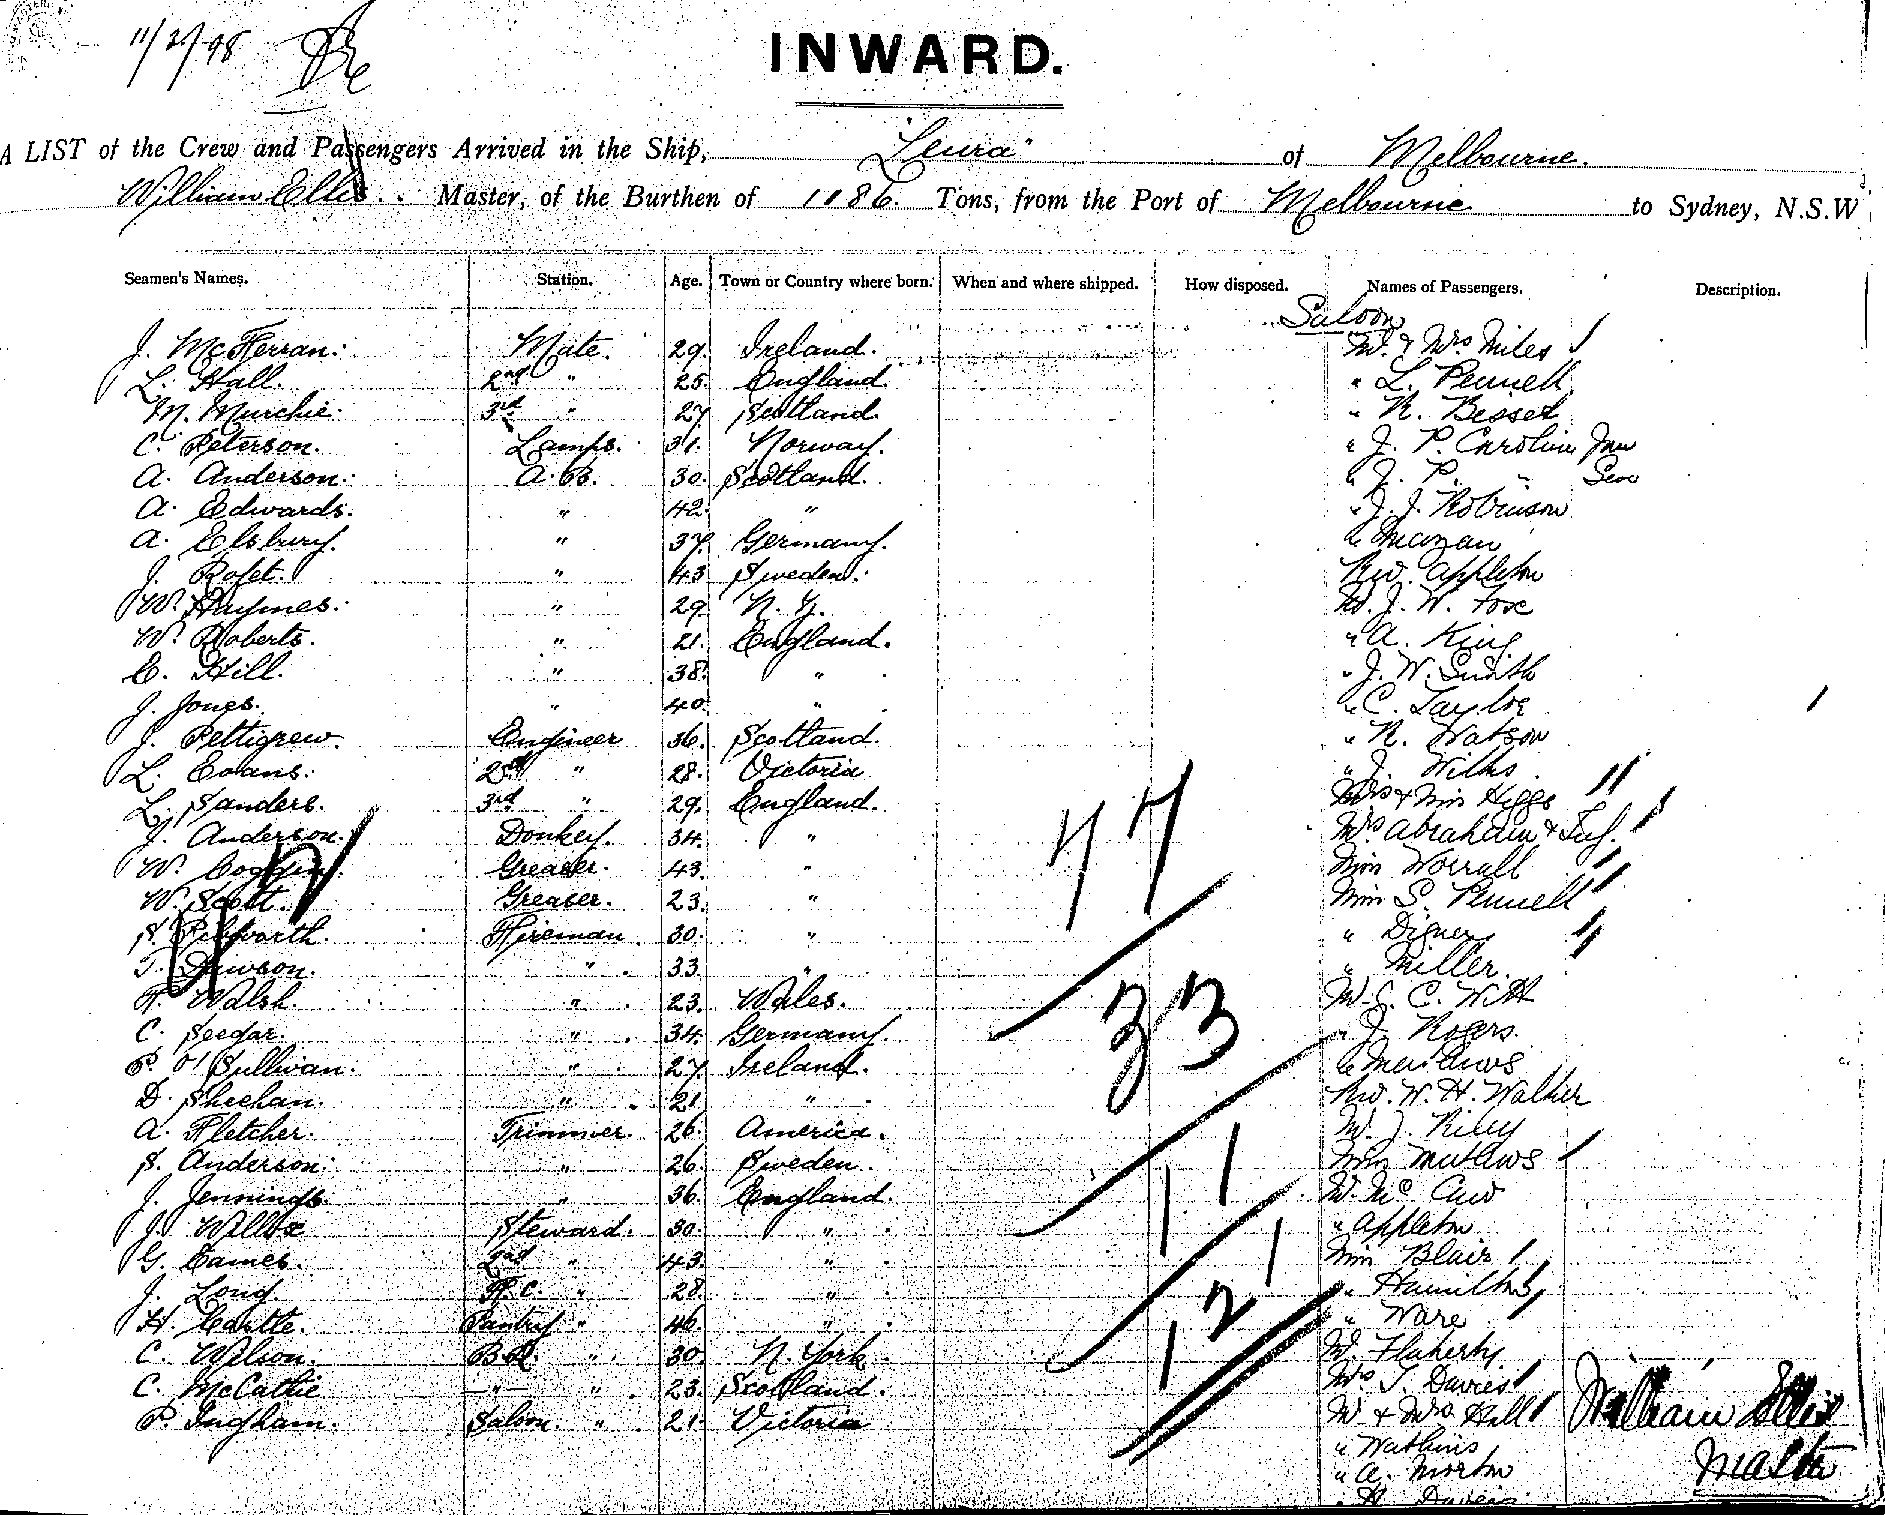 11/2/98
INWARD.
A LIST of the Crew and Passengers Arrived in the Ship, "Leura" of Melbourne.
William Ellis. Master, of the Burthen of 1186. Tons, from the Port of Melbourne to Sydney, N.S.W
Seamen's Names. Station. Age. Town or Country where born. When and where shipped. How disposed. Names of Passengers. Description.
Saloon
J. McFerran. Mate. 29. Ireland. Mr. & Mrs Miles
L. Hall. 2nd " 25. England. " L. Pennell
M. Murchie. 3rd " 27 Scotland. " R. Besset
C. Peterson. Lamps. 31. Norway. " J. P. Caroline Jnr
A. Anderson. A.B. 30. Scotland. " J. P. " Senr
A. Edwards. " 42. " " J. J. Robinson
A. Elsbury. " 37. Germany. "
J. " 43 Sweden. Rev. Appleton
W. Haymes. " 29 N. Y. Mr. J. W. Fox
W. Roberts. " 21. England. " A. King
E. Hill. " 38. " " J. W. Smith
J. Jones. " 40. " " C. Taylor
J. Pettigrew. Engineer 36. Scotland. " R. Watson
L. Evans. 2nd " 28. Victoria " J. Wilks
L. Sanders. 3rd " 29. England. Mrs & Miss Higgs
J. Anderson. Donkey. 34. " Mrs Abraham & Inf.
W. Greaser. 43. " Miss Worrall
W. Scott. Greaser. 23. " Miss S. Pennell
S. Fireman 30. " "
T. Dawson. " 33. " " Miller.
Walsh. " 23. Wales. Mr. C. Witt
C. Seegar. " 34. Germany. " J. Rogers.
P. O'Sullivan. " 27. Ireland. "
D. Sheehan. " 21 " Rev. W. H. Walker
A. Fletcher. Trimmer. 26. America. Mr. J. Riley
S. Anderson. " 26. Sweden. Miss Mathews
J. Jennings. " 36. England. Mr. Mc
J. Willox Steward. 30. " " Appleton
G. Eames. 2nd " 43. " Miss Blair
J. Long. F.C. " 28. " " Hamilton
H. Pantry " 46. " " Ware
C. Wilson. B.R. " 30. N. York. Mr. Flaherty
C. McCathie — " — " 23. Scotland. Mrs T. Davies
P. Ingham. Saloon. " 21. Victoria Mr & Mrs Hill
" Watkins
" A. Morton
" H. Davies
77
33
11
1
12
1
William Ellis
Master